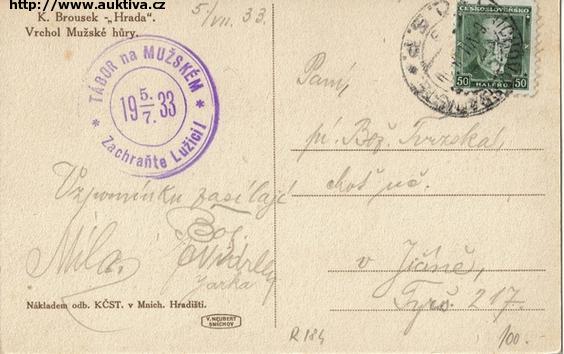 http://www.auktiva.cz
K. Brousek - „Hrada".
Vrchol Mužské hůry.
5/VII. 33.
TÁBOR na MUŽSKÉM
19 5/7. 33
* Zachraňte Lužici! *
ČESKOSLOVENSKO
50 50
HALÉŘŮ
Paní,
pí. Bož. Tvrzská,
choť uč.
v Jičíně,
Tyrš. 217.
Vzpomínku zasílají
Bož.
Míla
Jarka
Nákladem odb. KČST. v Mnich. Hradišti.
V. NEUBERT
SMÍCHOV
R 184
100.